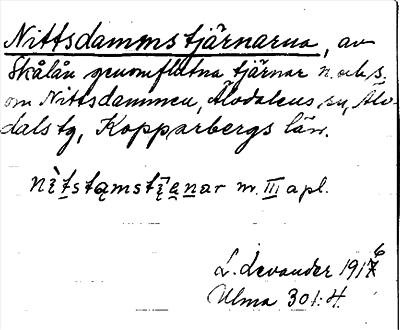 Nittsdammstjärnarna, av
Skålån genomflutna tjärnar n. och s.
om Nittsdammen, Älvdalens sn, Älv-
dals tg, Kopparbergs län.
nìtstamstjęnar m. III a pl.
L. Levander 1916
Ulma 301:4.